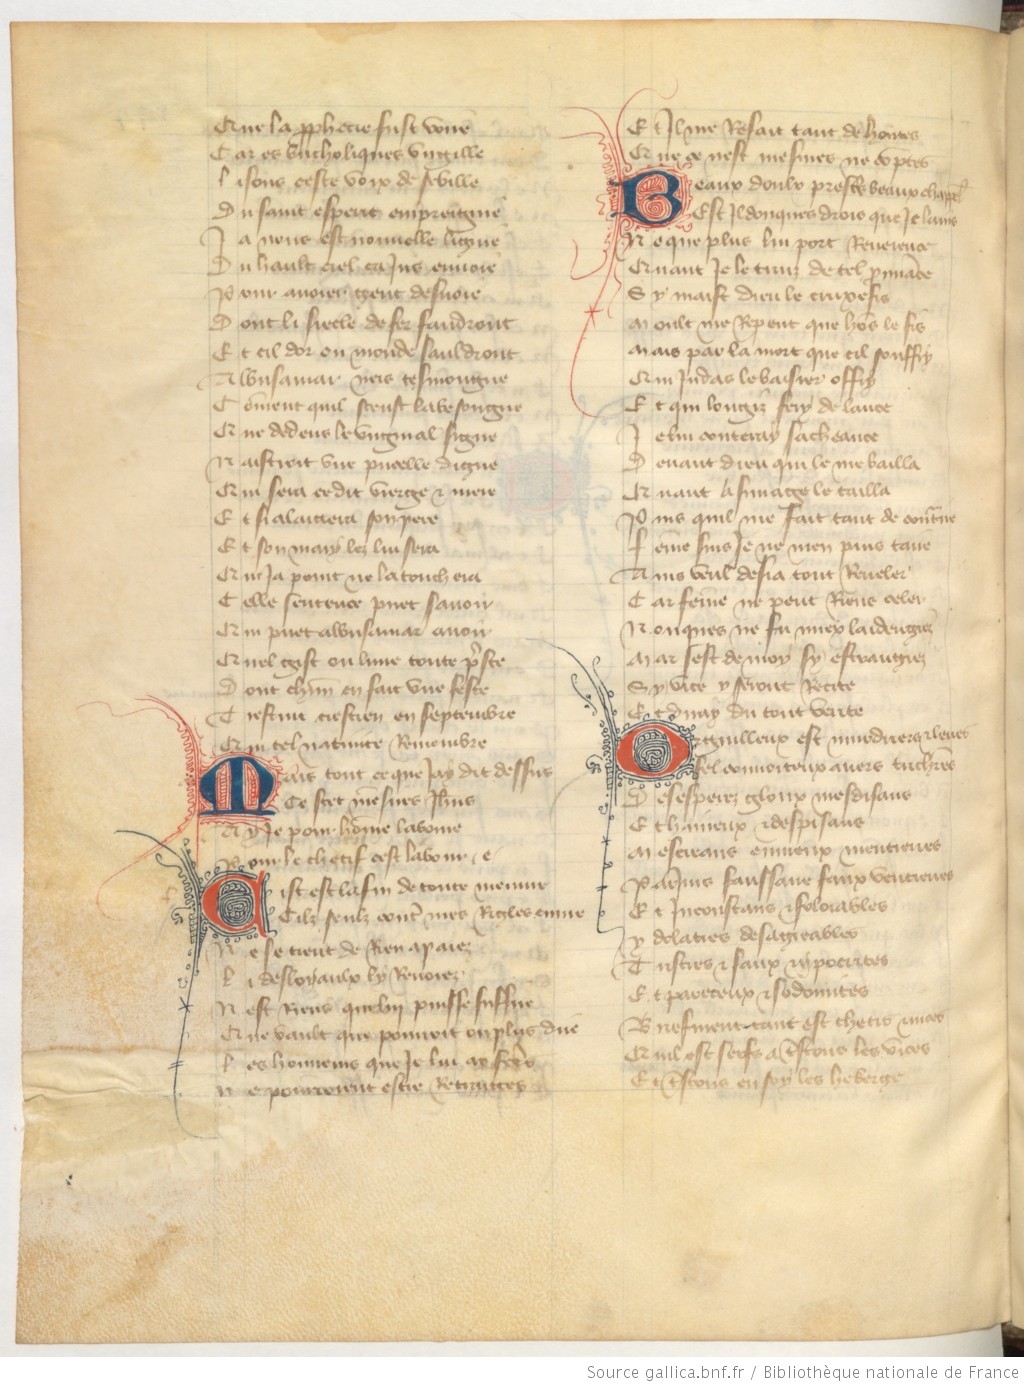 Que la pphecie fust voire
Car es bucholiques virgille
Lisons ceste voix de sebille
Du saint esperit empreignie
Ja nous est nouvelle ligne
Du hault ciel ca jus envoie
Pour avoier gent desvoie
Dont li siecle de fer faudront
Et cil dor ou monde sauldront
Albusamar neis tesmongne
Coment quil sceust la besongne
Que dedens le virginal signe
Naistroit une pucelle digne
Qui sera ce dit vierge et mere
Et si alaictera son pere
Et son mary lez lui sera
Qui ja point ne la touchera
Celle sentence puet savoir
Qui puet albusamar avoir
Quel gist ou livre toute preste
Dont chun en fait une feste
Crestien en septembre
Qui tel nativite Remembre
Mais tout ce que jay dit dessus
Ce scet mesires Jhus
Ay je pour home laboure
Pour le chetif cest labour e
Cist est la fin de toute meuvre
Cilz seulz contre mes Rigles euvre
Ne se tient de Rien apaiez
Li desloyaulx ly Renoiez
Nest Riens qui luy puisse suffire
Que vault que pourroit on plus dire
Les honneurs que je lui ay fets
Ne pourroient estre Retraittes
Et Il me Refait tant de hontes
Que ce nest mesures ne contes
Beaux doulx prestres beaux chappl
Est Il donques drois que je laims
Ne que plus lui port Reverence
Quant Je le truis de tel
Sy maist dieu le crucefis
Moult me Repent que hos le fis
Mais par la mort que cil souffry
Qui Judas le baisier offry
Et qui longis fery de lance
Je lui conteray sa cheance
Devant dieu qui le me bailla
Quant a simaige le tailla
Puis quil me fait tant de
Feme suis Je ne men puis taire
Ains veul desia tout Reveler
Car feme ne peut Riens celer
Nonques ne fu mieux laidengiez
Mar sest de moy sy estrangiez
Sy vice y seront Recite
Et diray du tout verite
Orguilleux est murdriers et lerres
Fel convoiteux avers tricherres
Desesperez gloux mesdisans
Et haineux et despisans
Mescreans envieux mentierres
Pariures faussaire faux venterres
Et Inconstans et foloiables
ydolatres desagreables
Traistres et faux ypocrites
Et pareceux et sodomites
Briefment tant est chetis nices
Quil est serfs a trestous les vices
Et trestous en soy les heberge
Source gallica.bnf.fr / Bibliothèque nationale de France